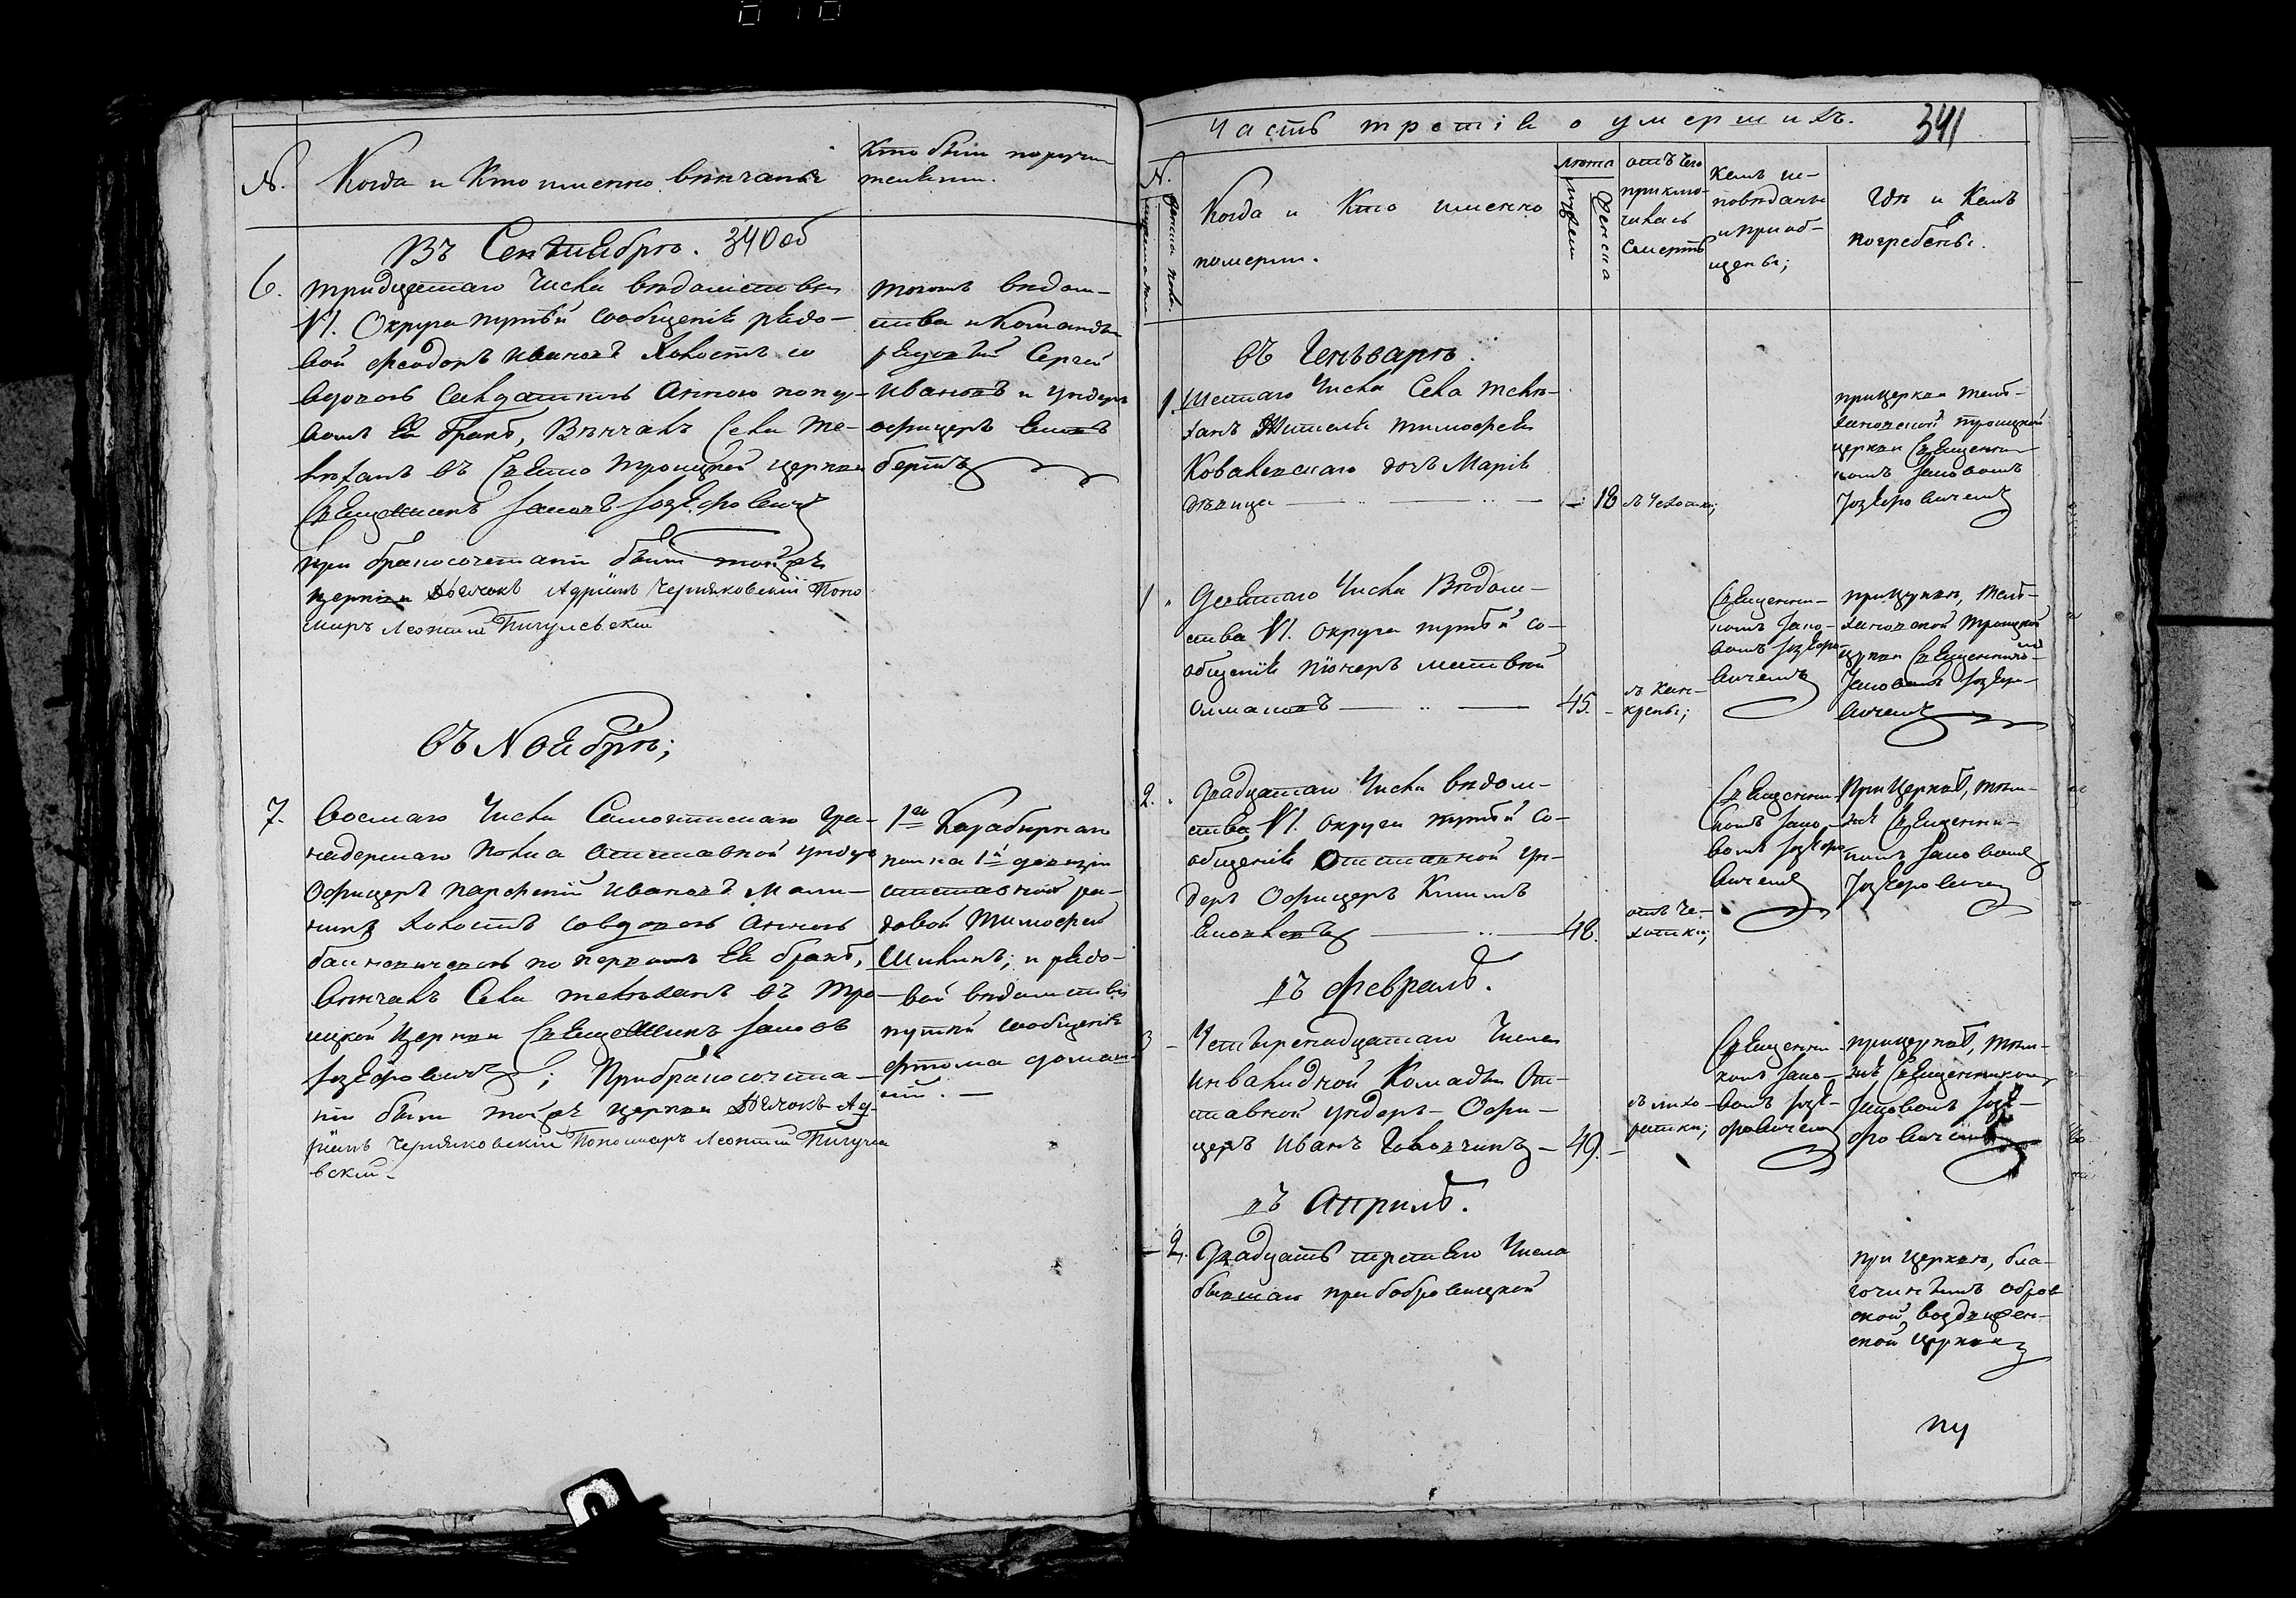 №.
Когда и Кто именно венчаны
Кто были поручи-
тели.
Въ Сентиабрѣ. 340 об
6.
тридцатаго Числа вѣдомства
VI. Округа путей сообщенія рядо-
вой Феодоръ Ивановъ Холостъ со
вдовою Анною по
Ея бракъ, Вѣнчалъ Села Те-
лѣханъ въ Свято Троицкой церкви
Священникъ Іаковъ Іозефовичъ
при бракосочетаніи были тойже
церкви Дьячокъ Адріанъ Черняковскій Поно
маръ Леонтій Пигулевскій
тогожъ вѣдом-
ства и Команды
рядовый Сергей
Ивановъ и ундеръ
офицеръ
въ Ноябрѣ;
7.
Восмаго Числа Самогитскаго гре-
надерскаго Полка Отставной ундеръ
Офицеръ Парфеній Ивановъ Мали-
нинъ Холостъ со вдовою Анною
по первомъ Ея бракѣ,
Вѣнчалъ Села телѣханъ въ Тро-
ицкой Церкви Священникъ Іаковъ
Іозефовичъ; При бракосочета-
ніи были тойже церкви Дьячокъ Ад-
ріанъ Черняковскій Пономаръ Леонтій Пигуле
вскій.
1го Карабирнаго
полка 1й дивизіи
отставной ря-
довой Тимофей
Шикинъ; и рядо-
вой вѣдомства
путей сообщенія
Фтома
Часть третія о умершихъ.
341
№.
Когда и Кто именно
померли.
лѣта
Мужеска
Женска
отъ чего
приклю-
чилась
Смерть
Кемъ ис-
повѣданы
и приоб-
щены;
Гдѣ и Кемъ
погребены.
въ Генъварѣ.
1.
Шестаго Числа Села телѣ-
ханъ Жителя Тимофея
Ковалевскаго дочъ Марія
дѣвица
18
Чехотки;
при церкви теле-
хановской троицкой
церкви Священни-
комъ Іаковомъ
Іозефовичемъ
1
Десятаго Числа Вѣдом-
ства VI. Округа путей со-
общенія Піонеръ Матвей
45.
Священни-
комъ Іако-
вомъ Іозефо-
вичемъ
при церкви, теле-
хановской троицкой
церкви Священникомъ
Іаковомъ Іозефо-
вичемъ
2.
Двадцатаго Числа вѣдом-
ства VI. Округа путей Со-
общенія Отставной Ун-
деръ Офицеръ Климъ
48.
отъ Че-
хотки;
Священни-
комъ Іако-
вомъ Іозефо-
вичемъ
При Церкве, той-
же Священни-
комъ Іаковомъ
Іозефовичем
въ Февралѣ.
3
Четырнадцатаго Числа
Инвалидной Команды От-
ставной ундеръ-Офи-
церъ Иванъ
49.
Священни-
комъ Іако-
вомъ Іозе-
фовичем
при церкве, той-
же Священникомъ
Іаковомъ Іозе-
фовичемъ
въ Априлѣ.
2.
Двадцать третьяго Числа
бывшаго при бобровицкой
при Церкви, бла-
гочиннымъ обров
ской, воздвижен-
ской церкви
пу